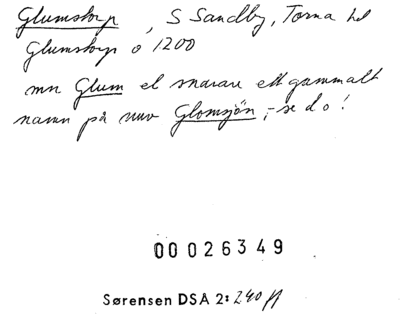 Glumstorp, S Sandby, Torna hd
Glumstorp o 1200
mn Glum el snarare ett gammalt
namn på nuv Glomsjön, - se d o!
00026349
Sørensen DSA 2: 240 ff